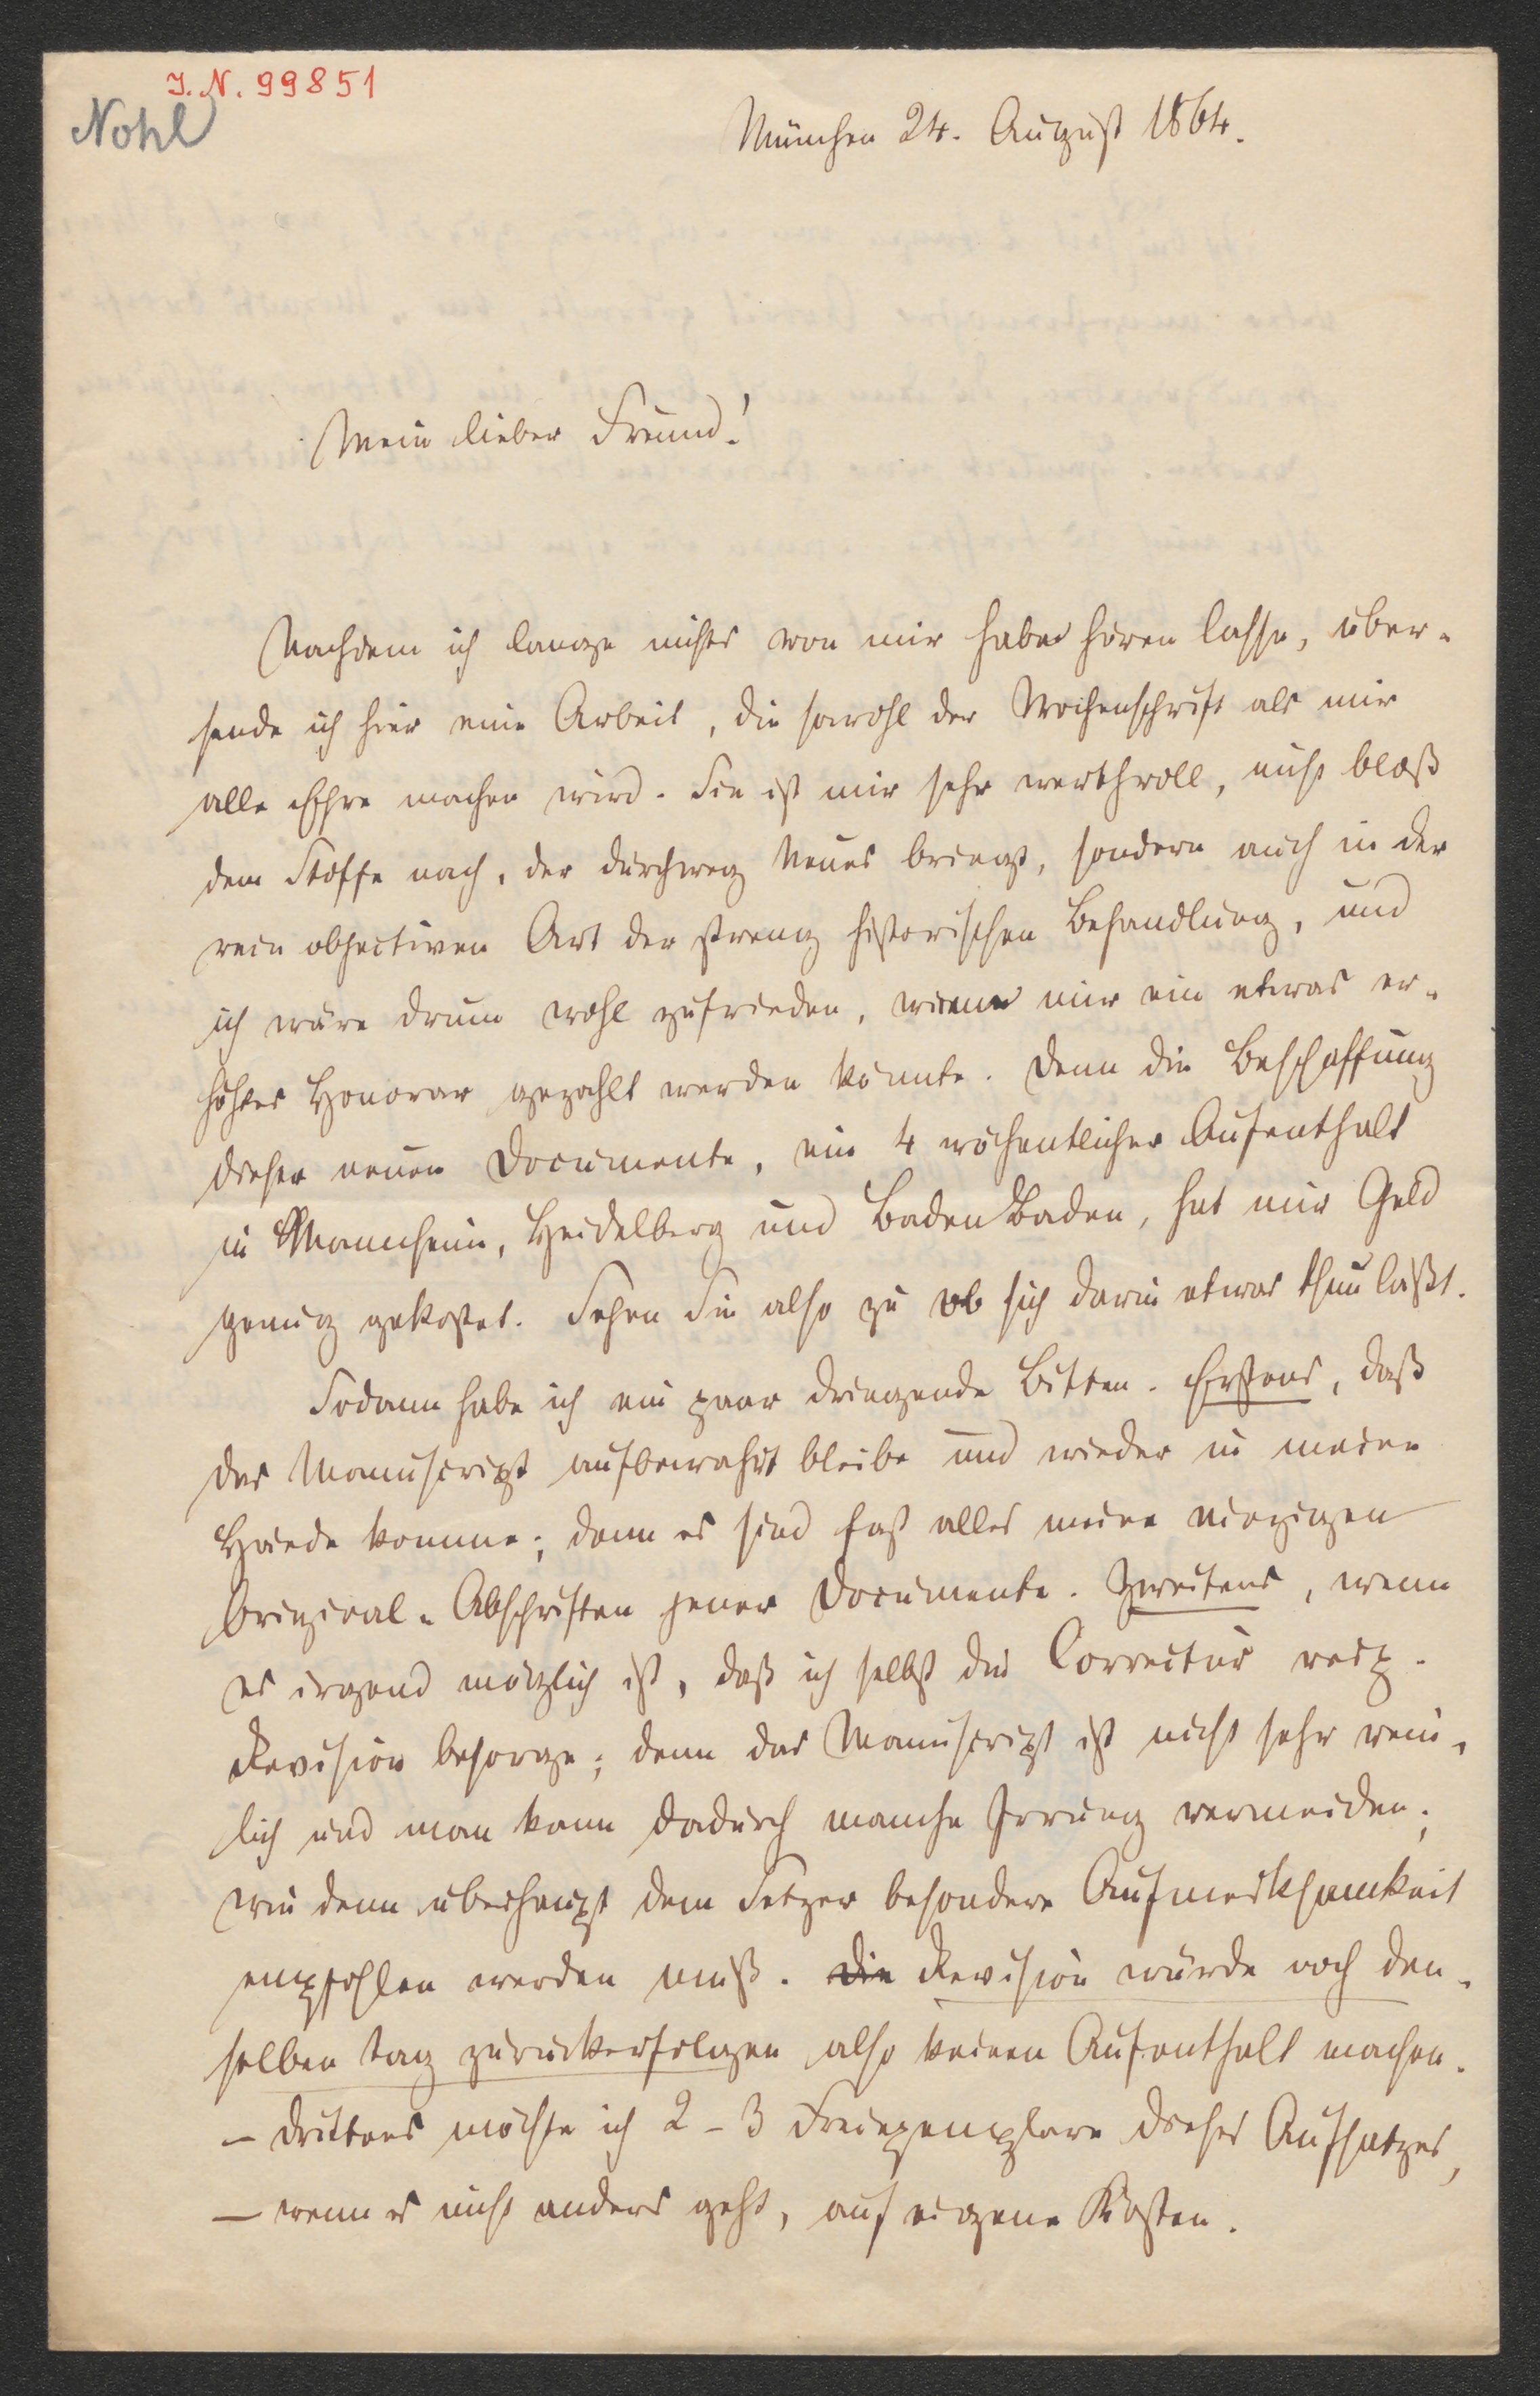 J. N. 99851
Nohl
München 24. August 1864.
Mein lieber Freund!
Nachdem ich lange nichts von mir habe hören lasse, über-
sende ich hier eine Arbeit, die sowohl der Wochenschrift als mir
alle Ehre machen wird. Sie ist mir sehr werthvoll, nicht bloß
dem Stoffe nach, der durchweg Neues bringt, sondern auch in der
rein objectiven Art der streng historischen Behandlung, und
ich wäre drum wohl zufrieden, wenn mir ein etwas er-
höhtes Honorar gezahlt werden könnte. Denn die Beschaffung
dieser neuen Documente, ein 4 wöchentlicher Aufenthalt
in Mannheim, Heidelberg und Baden Baden, hat mir Geld
genug gekostet. Sehen Sie also zu ob sich darin etwas thun läßt.
Sodann habe ich ein paar dringende Bitten. Erstens, daß
das Manuscript aufbewahrt bleibe und wieder in meine
Hände komme; denn es sind fast alles meine einzigen
Original-Abschriften jener Documente. Zweitens, wenn
es irgend möglich ist, daß ich selbst die Correctur resp.
Revision besorge; denn das Manuscript ist nicht sehr rein-
lich und man kann dadurch manche Irrung vermeiden;
wie denn überhaupt dem Setzer besondere Aufmerksamkeit
empfohlen werden muß. Die Revision würde noch den-
selben Tag zurückerfolgen also keinen Aufenthalt machen.
– Drittens möchte ich 2-3 Freiexemplare dieses Aufsatzes,
– wenn es nicht anders geht, auf eigene Kosten.